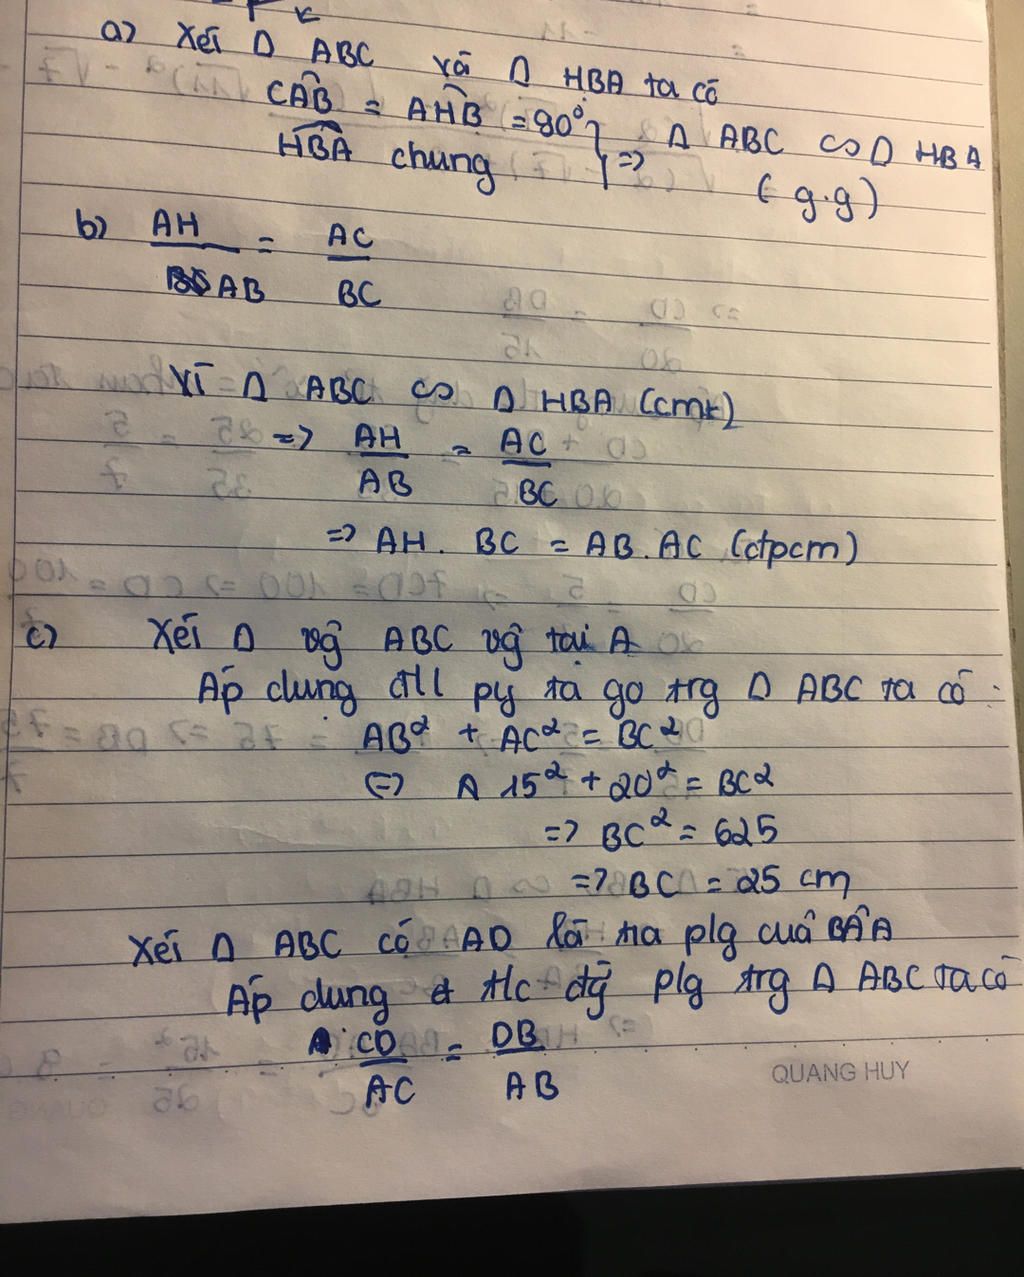 a) Xét Δ ABC và Δ HBA ta có
CÂB = AĤB = 90° } => Δ ABC ∽ Δ HBA
HB̂A chung (g.g)
b) AH/AB = AC/BC
Vì Δ ABC ∽ Δ HBA (cmt)
=> AH/AB = AC/BC
=> AH . BC = AB . AC (đpcm)
c) Xét Δ vg ABC vg tại A
Áp dụng đll py ta go trg Δ ABC ta có :
AB² + AC² = BC²
(=) 15² + 20² = BC²
=> BC² = 625
=> BC = 25 cm
Xét Δ ABC có AD là tia plg của
Áp dụng t/c đg plg trg Δ ABC ta có
CD/AC = DB/AB
QUANG HUY